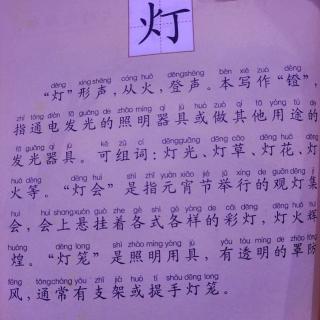 灯
dēng xíng shēng cóng huǒ dēng shēng běn xiě zuò dēng
“灯”形声,从火,登声。本写作“镫”,
zhǐ tōng diàn fā guāng de zhào míng qì jù huò zuò qí tā yòng tú de
指通电发光的照明器具或做其他用途的
fā guāng qì jù kě zǔ cí dēng guāng dēng cǎo dēng huā dēng
发光器具。可组词:灯光、灯草、灯花、灯
huǒ děng dēng huì shì zhǐ yuán xiāo jié jǔ xíng de guān dēng jí
火等。“灯会”是指元宵节举行的观灯集
huì huì shang xuán guà zhe gè shì gè yàng de cǎi dēng dēng huǒ huī
会,会上悬挂着各式各样的彩灯,灯火辉
huáng dēng long shì zhào míng yòng jù yǒu tòu míng de zhào fáng
煌。“灯笼”是照明用具,有透明的罩防
fēng tōng cháng yǒu zhī jià huò tí shǒu dēng long
风,通常有支架或提手灯笼。